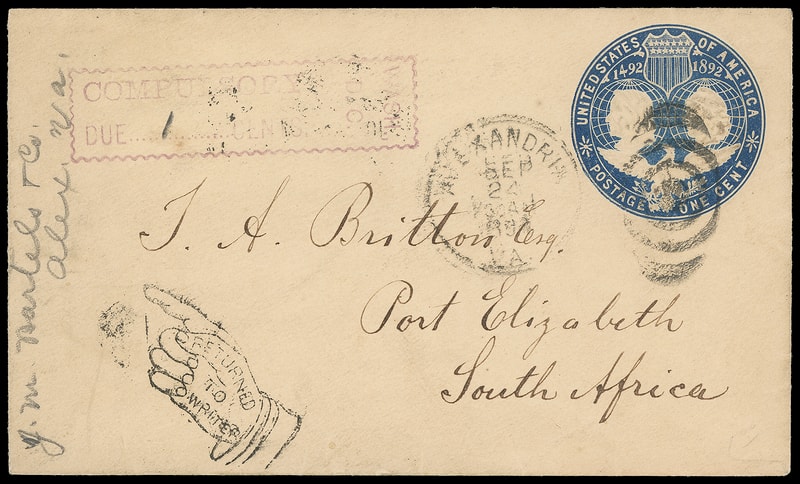 COMPULSORY
DUE
CENTS
WASH
D.C.
UNITED STATES OF AMERICA
1492 1892
POSTAGE ONE CENT
ALEXANDRIA
VA.
T. A. Britton Esq.
Port Elizabeth
South Africa
RETURNED
TO
WRITER
J. M. Bartels & Co.
Alex. Va.